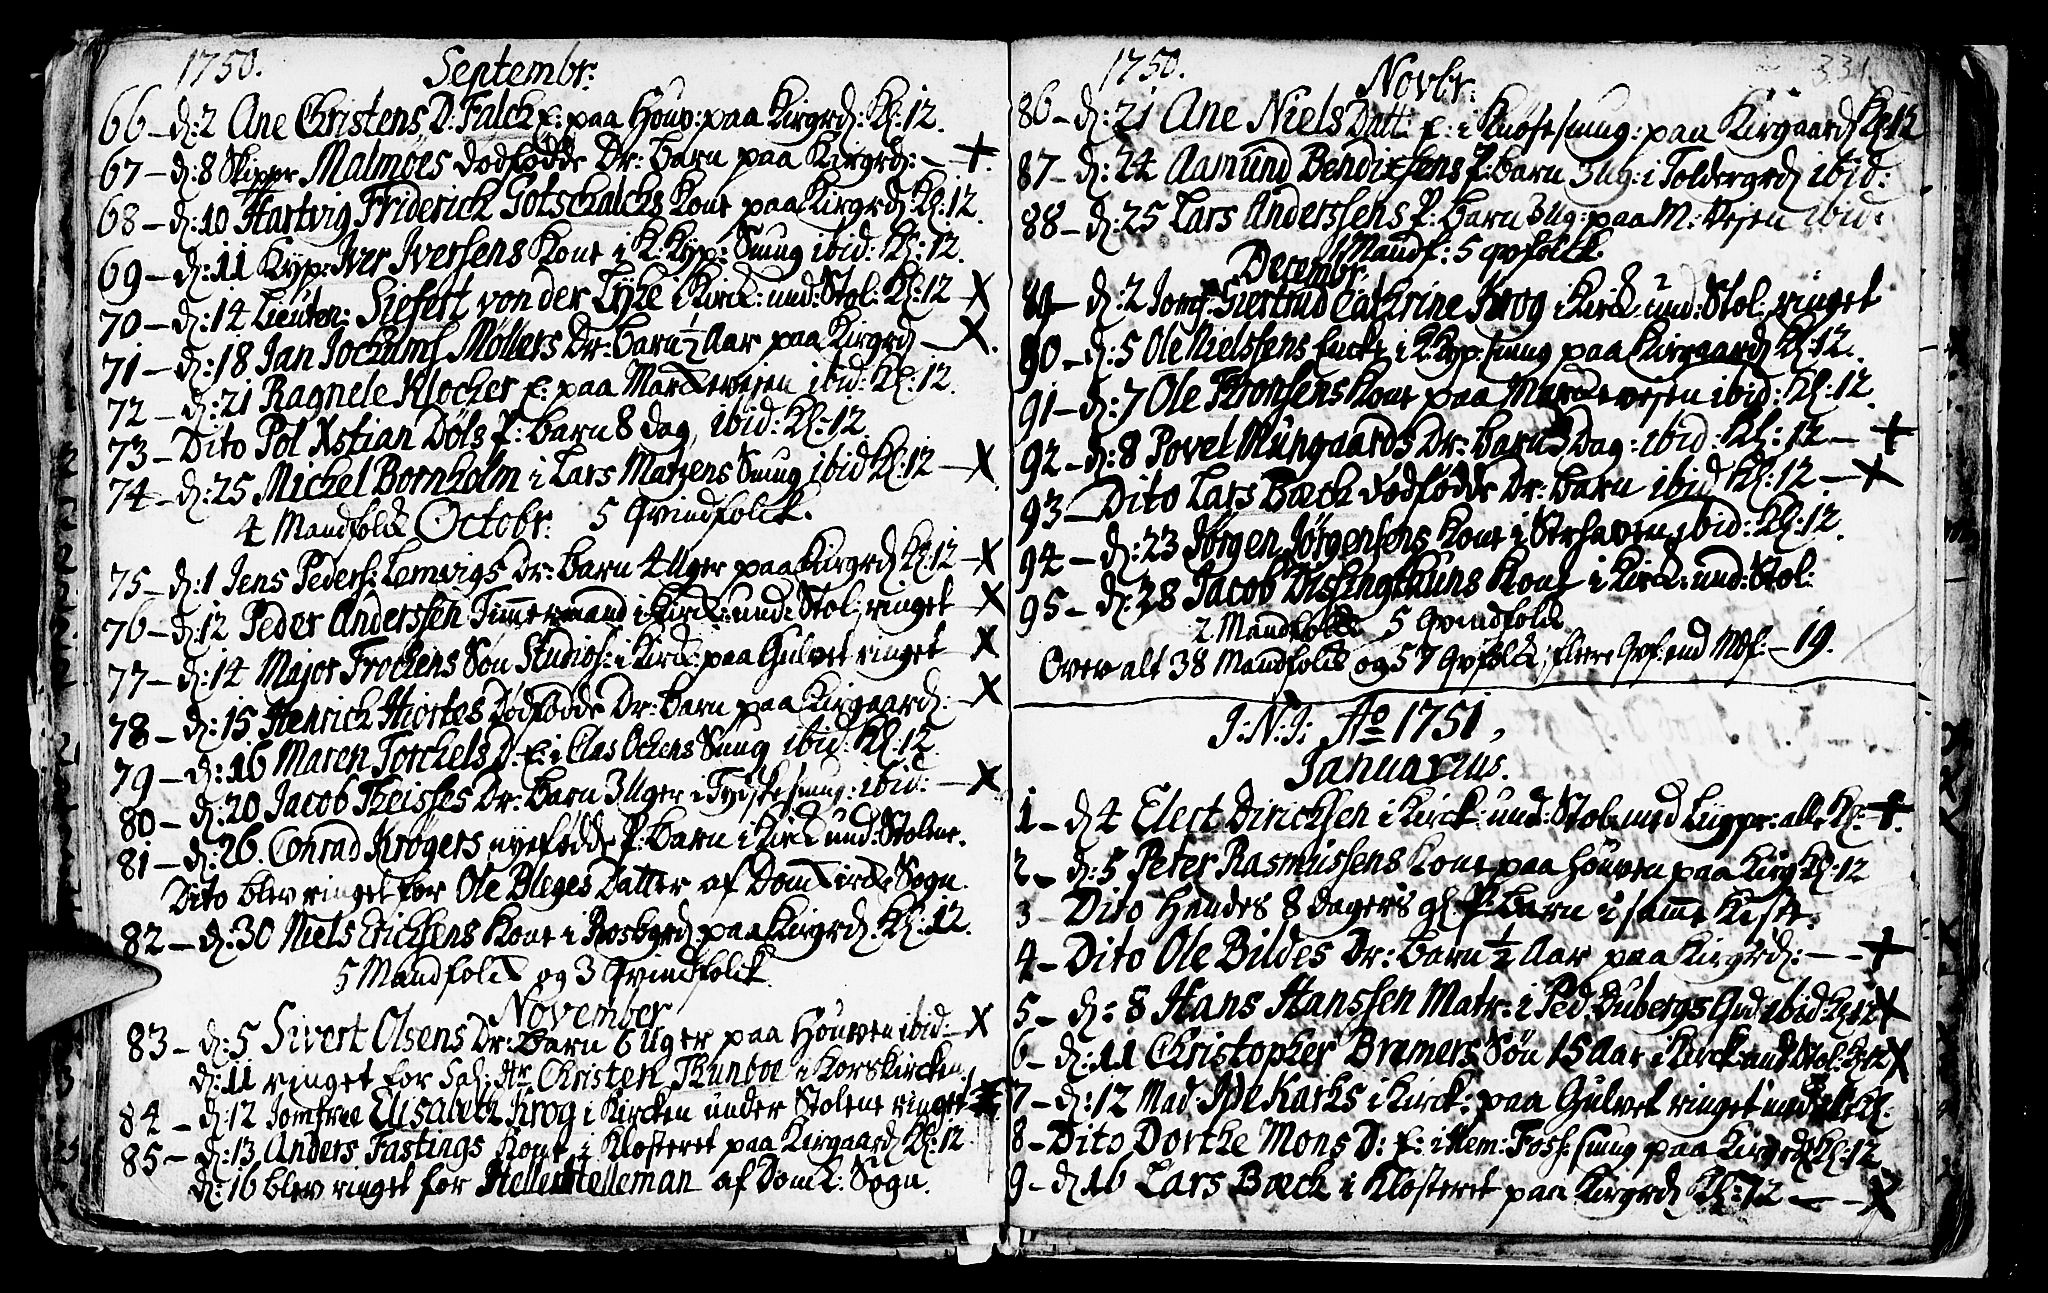 1750. Septembr:
66 – d: 2 Ane Christens D: Falck E: paa Houv: paa Kirgrd: Kl: 12.
67 – d: 8 Skippr Malmöes dödfödde Dr: barn paa Kirgrd: – +.
68 – d: 10 Hartvig Friderich Gotschalchs Kone paa Kirgrd Kl: 12.
69 – d: 11 Kyp: Iver Iversens Kone i K: Kyp: Smug ibid: Kl: 12.
70 – d: 14 Lieuten: Siefert von der Lyhe i Kirck: und: Stol: Kl: 12 – X
71 – d: 18 Jan Jochums Möllers Dr: barn ½ Aar paa Kirgrd – X.
72 – d: 21 Ragnele Klocker E: paa Marckevejen ibid: Kl: 12.
73 – Dito Pol Xstian Döls P: barn 8 dag, ibid: Kl: 12
74 – d: 25 Michel Bornholm i Lars Matzens Smug ibid Kl: 12 – X
4 Mandfolck Octobr: 5 Qvindfolck.
75 – d: 1 Jens Peders: Lemvigs Dr: barn 4 Uger paa Kirgrd Kl: 12 – X
76 – d: 12 Peder Anderssen Timmermand i Kirck: und: Stol: ringet – X
77 – d: 14 Major Frochens Sön Studios: i Kirck: paa Gulvet ringet – X
78 – d: 15 Henrich Hiortes dödfödde Dr: barn paa Kirgaard: – X
79 – d: 16 Maren Torchels D: E: i Clas Ockens Smug ibid: Kl: 12.
80 – d: 20 Jacob Theisses Dr: barn 3 Uger i Tydskesmug: ibid: – X
81 – d: 26. Conrad Krögers nyefödde P: barn i Kirck und: Stolene.
Dito blev ringet for Ole Bleges Datter af Domkircke Sogn.
82 – d: 30 Niels Erichsens Kone i Rosbgrd paa Kirgrd. Kl: 12.
5 Mandfolck og 3 Qvindfolck
November
83 – d: 5 Sivert Olsens Dr: barn 6 Uger paa Houven ibid: – X
d: 11 ringet for Sal: Hr Christen Thunboe i Korskircken.
84 – d: 12 Jomfrue Elisabeth Krog i Kircken under Stolene ringet
85 – d: 13 Anders Fastings Kone i Klosteret paa Kirgaard Kl: 12
d: 16 blev ringet for Helle Helleman af Domk: Sogn.
1750. Novbr: 331.
86 – d: 21 Ane Niels Datt: E: i Knösesmug: paa Kirgaard Kl: 12
87 – d: 24 Aamund Bendixsens P: barn 3 Ug: i Toldergrd ibid:
88 – d: 25 Lars Anderssens P: barn 3 Ug: paa M: Vejen ibid:
1 Mandf: 5 qvfolck
Decembr.
89 – d: 2 Jomf: Giertrud Cathrine Krog i Kirck: und: Stol: ringet
90 – d: 5 Ole Nielssens Encke i K Kyp: smug paa Kirgaard Kl: 12.
91 – d: 7 Ole Thorsens Kone paa Marckevejen ibid: Kl: 12.
92 – d: 8 Povel Mungaards Dr: barn 3 Dag: ibid: Kl: 12 – +
93 – Dito Lars Bæck dödfödde Dr: barn ibid Kl: 12 – X
94 – d: 23 Jörgen Jörgensens Kone i Strhaven, ibid: Kl: 12.
95 – d: 28 Jacob Dissingthuns Kone i Kirck: und: Stol:
2 Mandfolck 5 Qvindfolck
Over alt 38 Mandfolck og 57 Qvfolck, flere Qvf: end Mdf: – 19.
J: N: J: Ao 1751,
Januarius.
1 – d 4 Elert Diricksen i Kirck: und: Stol: med Luppr: alle Kl: – +.
2 – d: 5 Peter Rasmussens Kone paa Houven paa Kirg Kl: 12
3 – Dito Hendes 8 dagers gl. P: barn i samme Kiste.
4 – Dito Ole Bildes Dr: barn ½ Aar paa Kirgrd: – – +
5 – d: 8 Hans Hanssen Matr: i Ped: Dubergs Grd ibid Kl: 12 X
6 – d: 11 Christopher Bremers Sön 15 Aar i Kirck: und: Stol: Kl: 12 X
7 – d: 12 Mad: Ide Karhs i Kirck: paa Gulvet ringet med Kl:
8 – Dito Dorthe Mons D: E: i Kem: Foss: smug paa Kirgrd Kl: 12.
9 – d 16 Lars Bæck i Klosteret paa Kirgrd Kl: 12 – – X